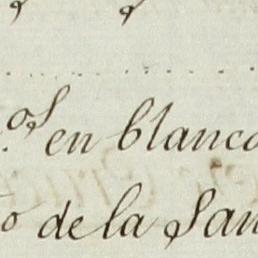 os en blanco
to de la San